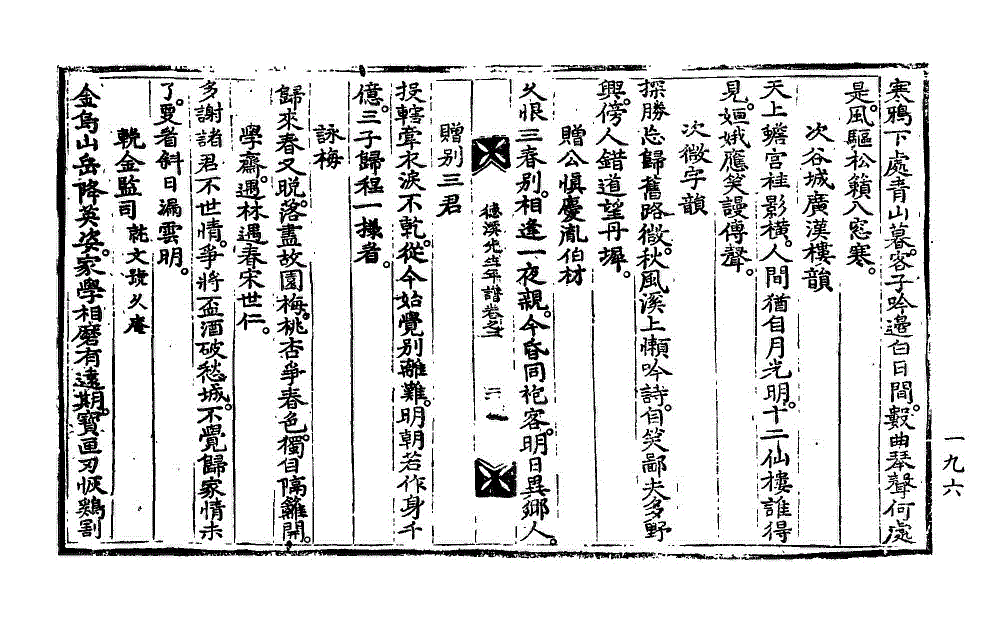 寒鴉下處靑山暮。客子吟邊白日間。數曲琴聲何處
是。風驅松籟入窓寒。
次谷城廣漢樓韻
天上蟾宮桂影橫。人間猶自月光明。十二仙樓誰得
見。姮娥應笑謾傳聲。
次微字韻
探勝忘歸舊路微。秋風溪上懶吟詩。自笑鄙夫多野
興。傍人錯道望丹墀。
贈公愼慶胤伯材
久恨三春別。相逢一夜親。今昏同袍客。明日異鄕人。
德溪先生年譜卷之一
三一
贈別三君
投轄牽衣淚不乾。從今始覺別離難。明朝若作身千
億。三子歸程一㨾看。
詠梅
歸來春又晩。落盡故園梅。桃杏爭春色。獨自隔籬開。
學齋遇林遇春宋世仁
多謝諸君不世情。爭將盃酒破愁城。不覺歸家情未
了。更看斜日漏雲明。
輓金監司 就文號久庵
金烏山岳降英姿。家學相磨有遠期。寶匣刃恢鷄割
一九六